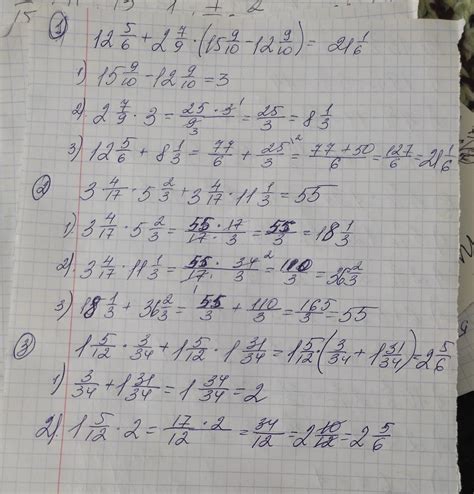 1) 12 5/6 + 2 7/9 · (15 9/10 - 12 9/10) = 21 1/6
1) 15 9/10 - 12 9/10 = 3
2) 2 7/9 · 3 = 25 · 3 1/9 3 = 25/3 = 8 1/3
3) 12 5/6 + 8 1/3 = 77/6 + 25/3 \2 = 77 + 50/6 = 127/6 = 21 1/6
2) 3 4/17 · 5 2/3 + 3 4/17 · 11 1/3 = 55
1). 3 4/17 · 5 2/3 = 55 · 17/17 · 3 = 55/3 = 18 1/3
2). 3 4/17 · 11 1/3 = 55 · 34 2/17 · 3 = 110/3 = 36 2/3
3) 18 1/3 + 36 2/3 = 55/3 + 110/3 = 165/3 = 55
3) 1 5/12 · 3/34 + 1 5/12 · 1 31/34 = 1 5/12 · (3/34 + 1 31/34) = 2 5/6
1) 3/34 + 1 31/34 = 1 34/34 = 2
2). 1 5/12 · 2 = 17 · 2/12 = 34/12 = 2 10/12 = 2 5/6